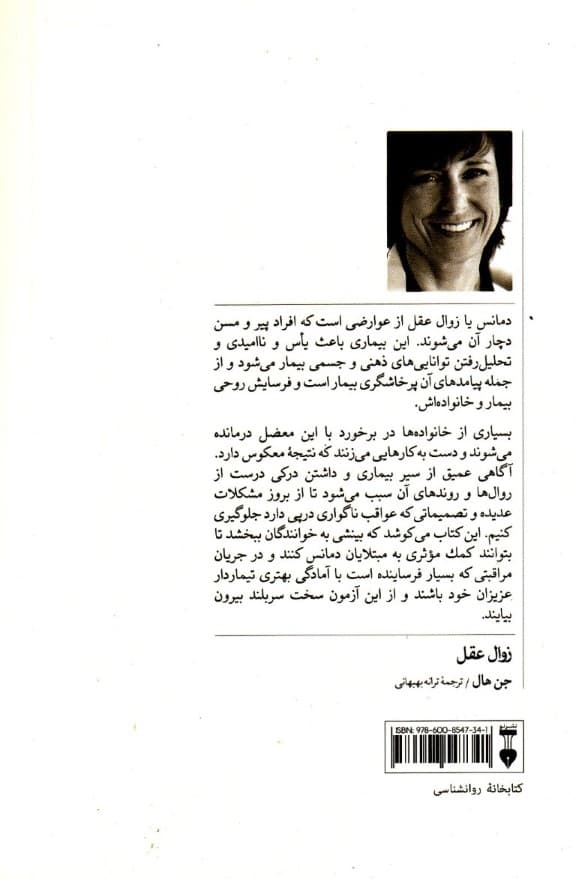 دمانس یا زوال عقل از عوارضی است که افراد پیر و مسن
دچار آن می‌شوند. این بیماری باعث یأس و ناامیدی و
تحلیل‌رفتن توانایی‌های ذهنی و جسمی بیمار می‌شود و از
جمله پیامدهای آن پرخاشگری بیمار است و فرسایش روحی
بیمار و خانواده‌اش.
بسیاری از خانواده‌ها در برخورد با این معضل درمانده
می‌شوند و دست به کارهایی می‌زنند که نتیجهٔ معکوس دارد.
آگاهی عمیق از سیر بیماری و داشتن درکی درست از
روال‌ها و روندهای آن سبب می‌شود تا از بروز مشکلات
عدیده و تصمیماتی که عواقب ناگواری درپی دارد جلوگیری
کنیم. این کتاب می‌کوشد که بینشی به خوانندگان ببخشد تا
بتوانند کمك مؤثری به مبتلایان دمانس کنند و در جریان
مراقبتی که بسیار فرساینده است با آمادگی بهتری تیماردار
عزیزان خود باشند و از این آزمون سخت سربلند بیرون
بیایند.
زوال عقل
جن هال / ترجمهٔ ترانه بهبهانی
ISBN: 978-600-8547-34-1
نشر نو
کتابخانهٔ روانشناسی